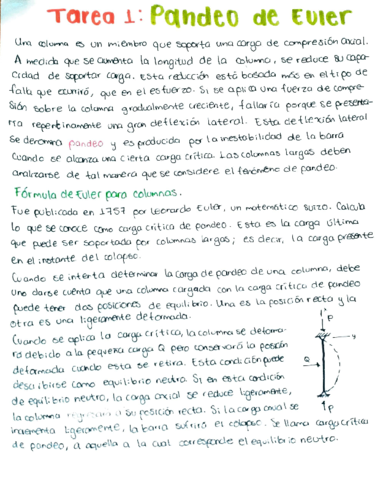 Tarea 1: Pandeo de Euler
Una columna es un miembro que soporta una carga de compresión axial.
A medida que se aumenta la longitud de la columna, se reduce su capa-
cidad de soportar carga. Esta reducción está basada más en el tipo de
falla que ocurrirá, que en el esfuerzo. Si se aplica una fuerza de compre-
sión sobre la columna gradualmente creciente, fallaría porque se presenta-
rra repentinamente una gran deflexión lateral. Esta deflexión lateral
se denomina pandeo y es producida por la inestabilidad de la barra
cuando se alcanza una cierta carga crítica. Las columnas largas deben
analizarse de tal manera que se considere el fenómeno de pandeo.
Fórmula de Euler para columnas.
Fue publicada en 1757 por Leonardo Euler, un matemático suizo. Calcula
lo que se conoce como carga crítica de pandeo. Esta es la carga última
que puede ser soportada por columnas largas; es decir, la carga presente
en el instante del colapso.
Cuando se intenta determinar la carga de pandeo de una columna, debe
uno darse cuenta que una columna cargada con la carga crítica de pandeo
puede tener dos posiciones de equilibrio. Una es la posición recta y la
otra es una ligeramente deformada.
Cuando se aplica la carga crítica, la columna se deforma-
rá debido a la pequeña carga Q pero conservará la posición
deformada cuando esta se retira. Esta condición puede
describirse como equilibrio neutro. Si en esta condición
de equilibrio neutro, la carga axial se reduce ligeramente,
la columna regresará a su posición recta. Si la carga axial se
incrementa ligeramente, la barra sufrirá el colapso. Se llama carga crítica
de pandeo, a aquella a la cual corresponde el equilibrio neutro.
P
y
Q
P